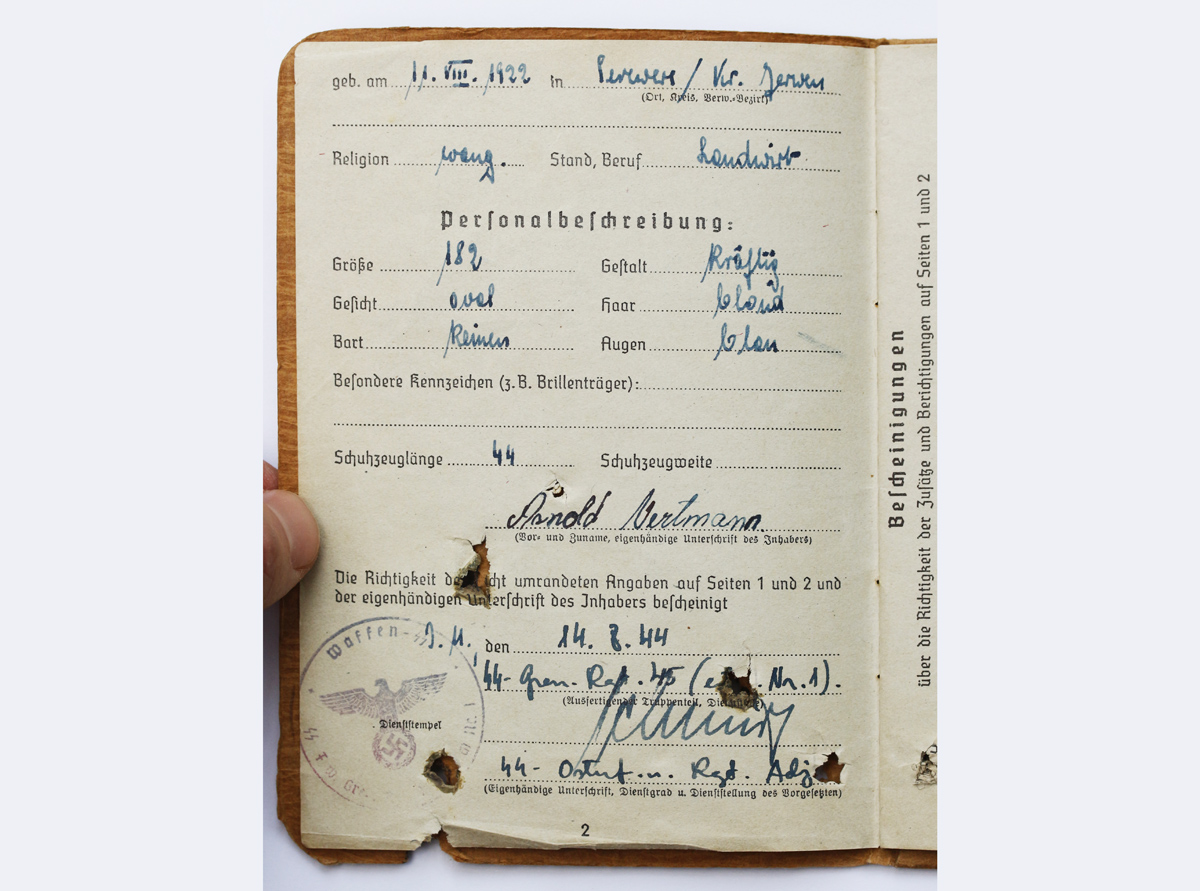 geb. am 11. VIII. 1922 in / Kr. Jerwen
(Ort, Kreis, Verw.-Bezirk)
Religion evang. Stand, Beruf Landwirt
Personalbeschreibung:
Größe 182 Gestalt kräftig
Gesicht oval Haar blond
Bart keinen Augen blau
Besondere Kennzeichen (z. B. Brillenträger):
Schuhzeuglänge 44 Schuhzeugweite
Arnold Vertmann
(Vor- und Zuname, eigenhändige Unterschrift des Inhabers)
Die Richtigkeit der nicht umrandeten Angaben auf Seiten 1 und 2 und
der eigenhändigen Unterschrift des Inhabers bescheinigt
O.U., den 14. 8. 44
SS-Gren. Rgt. 45 (estn. Nr. 1).
(Ausfertigender Truppenteil, Dienststelle)
Waffen-SS
Dienststempel
SS-Ostuf. u. Rgt. Adj.
(Eigenhändige Unterschrift, Dienstgrad u. Dienststellung des Vorgesetzten)
2
Bescheinigungen
über die Richtigkeit der Zusätze und Berichtigungen auf Seiten 1 und 2